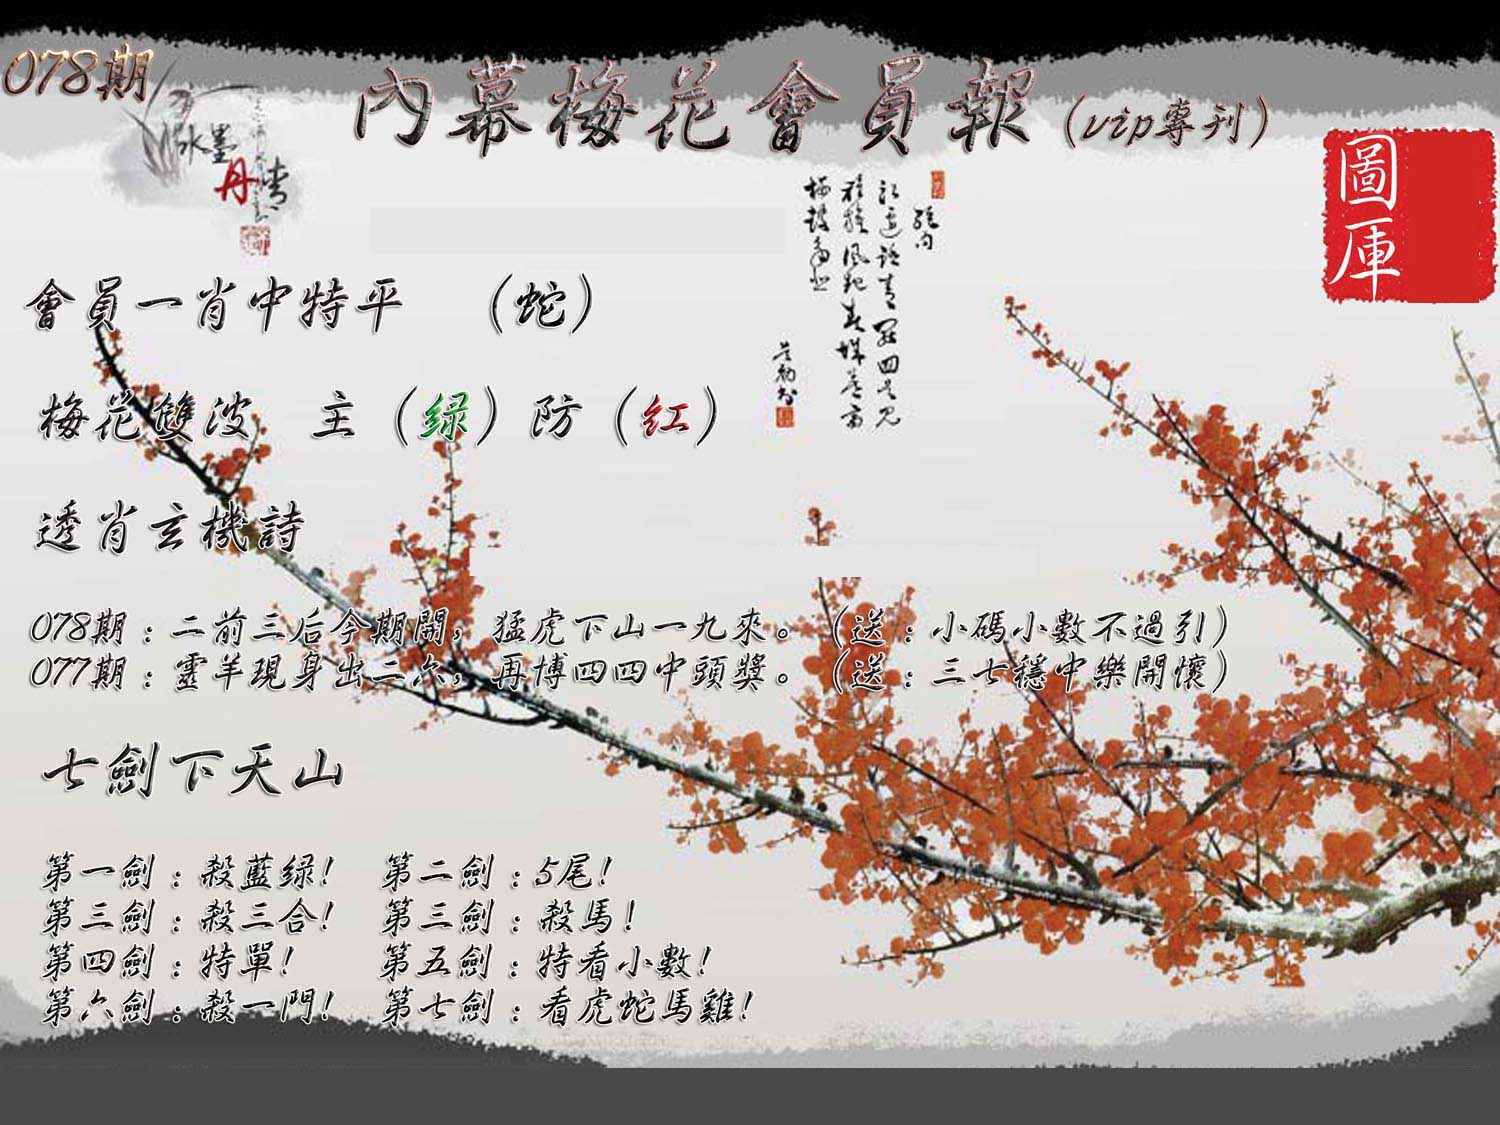 078期
內幕梅花會員報(vip專刊)
水墨
丹青
圖庫
會員一肖中特平 (蛇)
梅花雙波 主(绿)防(红)
透肖玄機詩
078期:二前三后今期開,猛虎下山一九來。(送:小碼小數不過引)
077期:靈羊現身出二六,再博四四中頭獎。(送:三七穩中樂開懷)
七劍下天山
第一劍:殺藍绿! 第二劍:5尾!
第三劍:殺三合! 第三劍:殺馬!
第四劍:特單! 第五劍:特看小數!
第六劍:殺一門! 第七劍:看虎蛇馬雞!